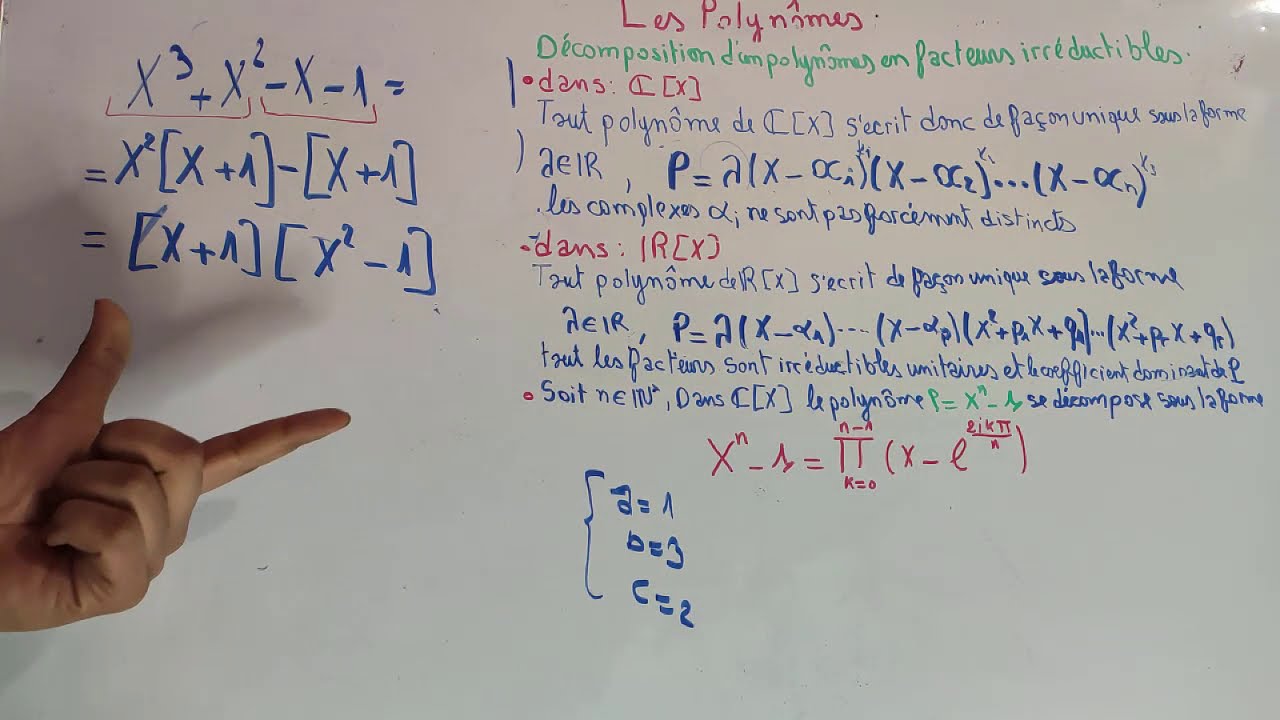 Les Polynômes.
Décomposition d'un polynômes en facteurs irréductibles.
• dans: ℂ[X]
Tout polynôme de ℂ[X] s'ecrit donc de façon unique sous la forme
λ∈ℝ, P=λ(X-α₁)^{k₁}(X-α₂)^{k₂}...(X-αₙ)
. les complexes αᵢ ne sont pas forcément distincts
• dans: ℝ[X]
Tout polynôme de ℝ[X] s'ecrit de façon unique sous la forme
λ∈ℝ, P=λ(X-α₁)....(X-αₚ)(X²+p₁X+q₁)...(X²+pᵣX+qᵣ)
tout les facteurs sont irréductibles unitaires et le coefficient dominant de P
• Soit n∈ℕ*, Dans ℂ[X] le polynôme P=Xⁿ-1 se décompose sous la forme
Xⁿ-1=∏_{k=0}^{n-1}(X-e^{2ikπ/n})
X³+X²-X-1=
=X²[X+1]-[X+1]
=[X+1][X²-1]
{a=1
b=3
c=2